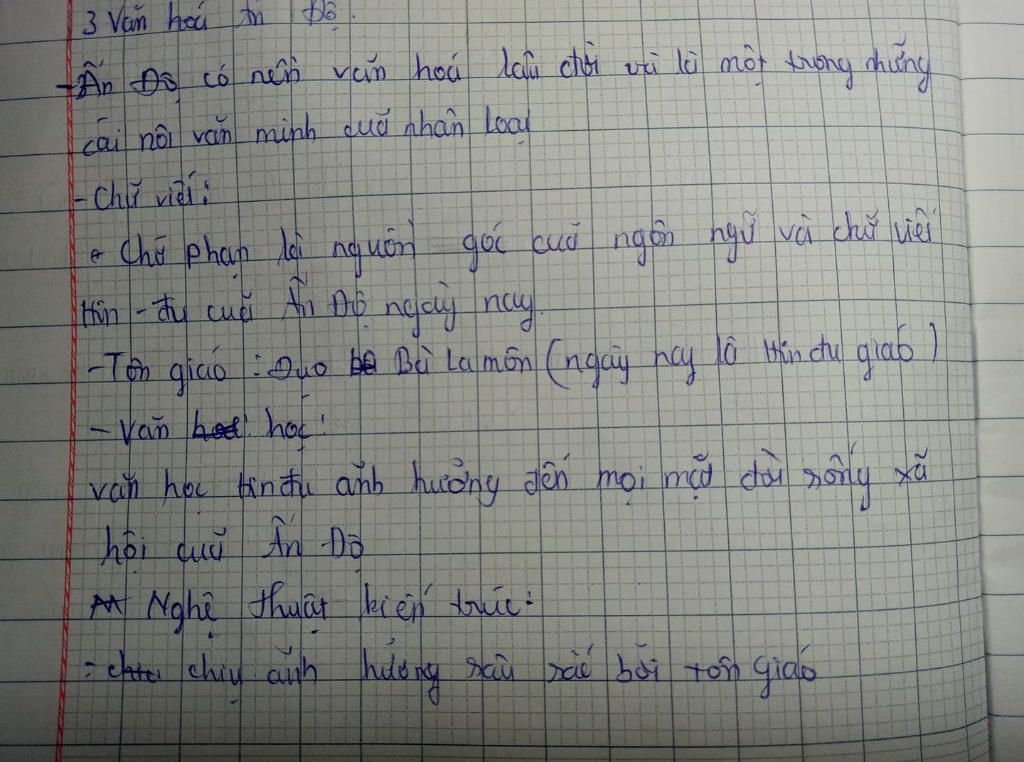 3 Văn hoá ấn Độ.
- Ấn Độ có nền văn hoá lâu đời và là một trong những
cái nôi văn minh cuả nhân loại
- Chữ viết:
+ Chữ phạn là nguồn gốc cuả ngôn ngữ và chữ viết
Hin - đu cuả Ấn Độ ngày nay.
- Tôn giáo : Đạo Bà La môn (ngày nay là Hin đu giáo)
- Văn học:
văn học Hin đu ảnh hưởng đến mọi mặt đời sống xã
hội cuả Ấn Độ
Nghệ thuật kiến trúc:
- chịu ảnh hưởng sâu sắc bởi tôn giáo